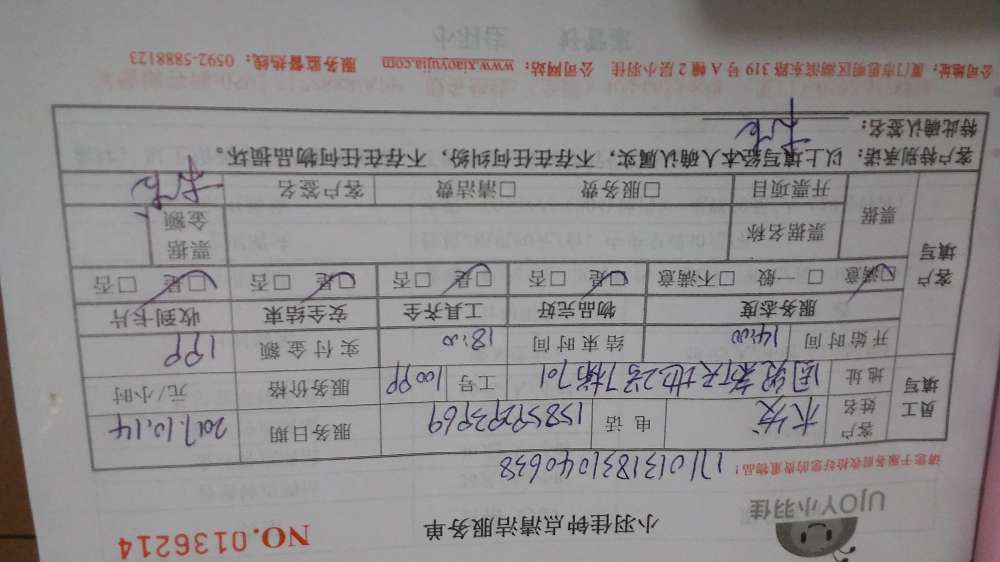 UJOY小羽佳
小羽佳钟点清洁服务单
NO.0136214
请您于服务前收拾好您的贵重物品!
1710131831040638
员工填写
客户姓名
电话
服务日期 2017.10.14
地址
工号
服务价格 元/小时
开始时间 14:00 结束时间 18:00 实付金额
客户填写
服务态度 物品完好 工具齐全 安全结束 收到卡片
☑满意 □一般 □不满意 ☑是 □否 ☑是 □否 ☑是 □否 ☑是 □否
票据 票据名称 票据金额
开票项目 □服务费 □清洁费 客户签名
客户特别承诺:以上填写经本人确认属实,不存在任何纠纷,不存在任何物品损坏。
特此确认签名:
公司地址:厦门市思明区湖滨东路 319 号 A 幢 2 层小羽佳 公司网站:www.xiaoyujia.com 服务监督热线:0592-5888123